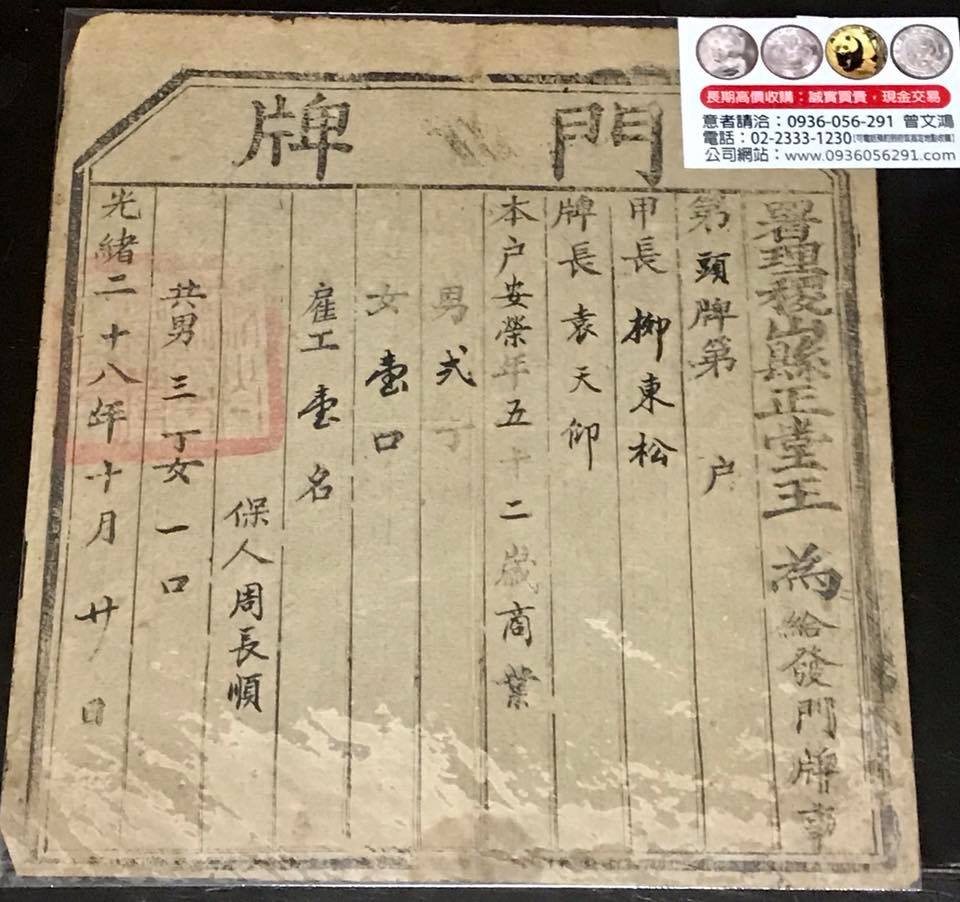 門牌
署理稷山縣正堂王 為給發門牌事
第頭牌第 户
甲長 柳東松
牌長 袁天仰
本户安榮年五十二歲商業
男弍丁
女壹口
雇工壹名
保人周長順
共男三丁女一口
光緒二十八年十月廿日
長期高價收購：誠實買賣，現金交易
意者請洽：0936-056-291 曾文鴻
電話：02-2333-1230
公司網站：www.0936056291.com